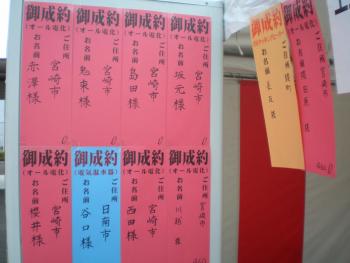 御成約
(オール電化)
ご住所
宮崎市
お名前
坂元様
御成約
(オール電化)
ご住所
宮崎市
お名前
島田様
御成約
(オール電化)
ご住所
宮崎市
お名前
鬼束様
御成約
(オール電化)
ご住所
宮崎市
お名前
赤澤様
御成約
(オール電化)
ご住所
宮崎市
お名前
川越 様
御成約
(オール電化)
ご住所
宮崎市
お名前
西田様
御成約
(電気温水器)
ご住所
日南市
お名前
谷口様
御成約
(オール電化)
ご住所
宮崎市
お名前
櫻井様
御成約
ご住所
宮崎市
お名前
様
御成約
ご住所
お名前
様